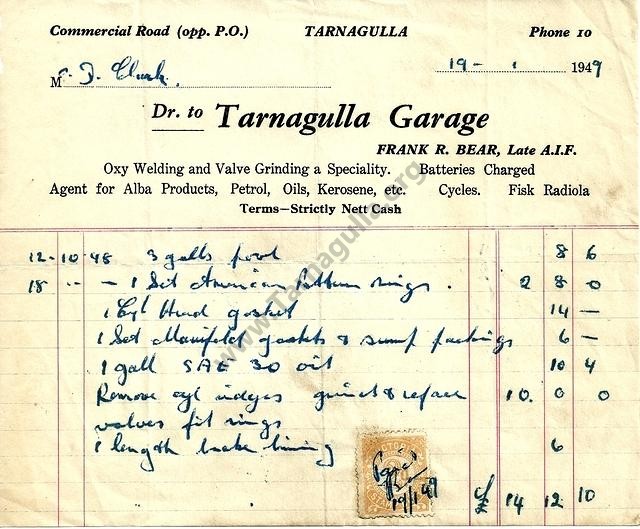 Commercial Road (opp. P.O.) TARNAGULLA Phone 10
19 - 1 1949
M J. Clark.
Dr. to Tarnagulla Garage
FRANK R. BEAR, Late A.I.F.
Oxy Welding and Valve Grinding a Speciality. Batteries Charged
Agent for Alba Products, Petrol, Oils, Kerosene, etc. Cycles. Fisk Radiola
Terms—Strictly Nett Cash
12-10-48 3 galls pool 8 6
18 .. - 1 Set American Pattern rings . 2 8 0
1 Cyl Head gasket 14 —
1 Set Manifold gaskets & sump packings 6 —
1 gall SAE 30 oil 10 4
Remove cyl ridges grind & reface 10. 0 0
valves fit rings
1 length brake lining 6
£ 14 12 10
VICTORIA
Paid
19/1/49
www.Tarnagulla.org